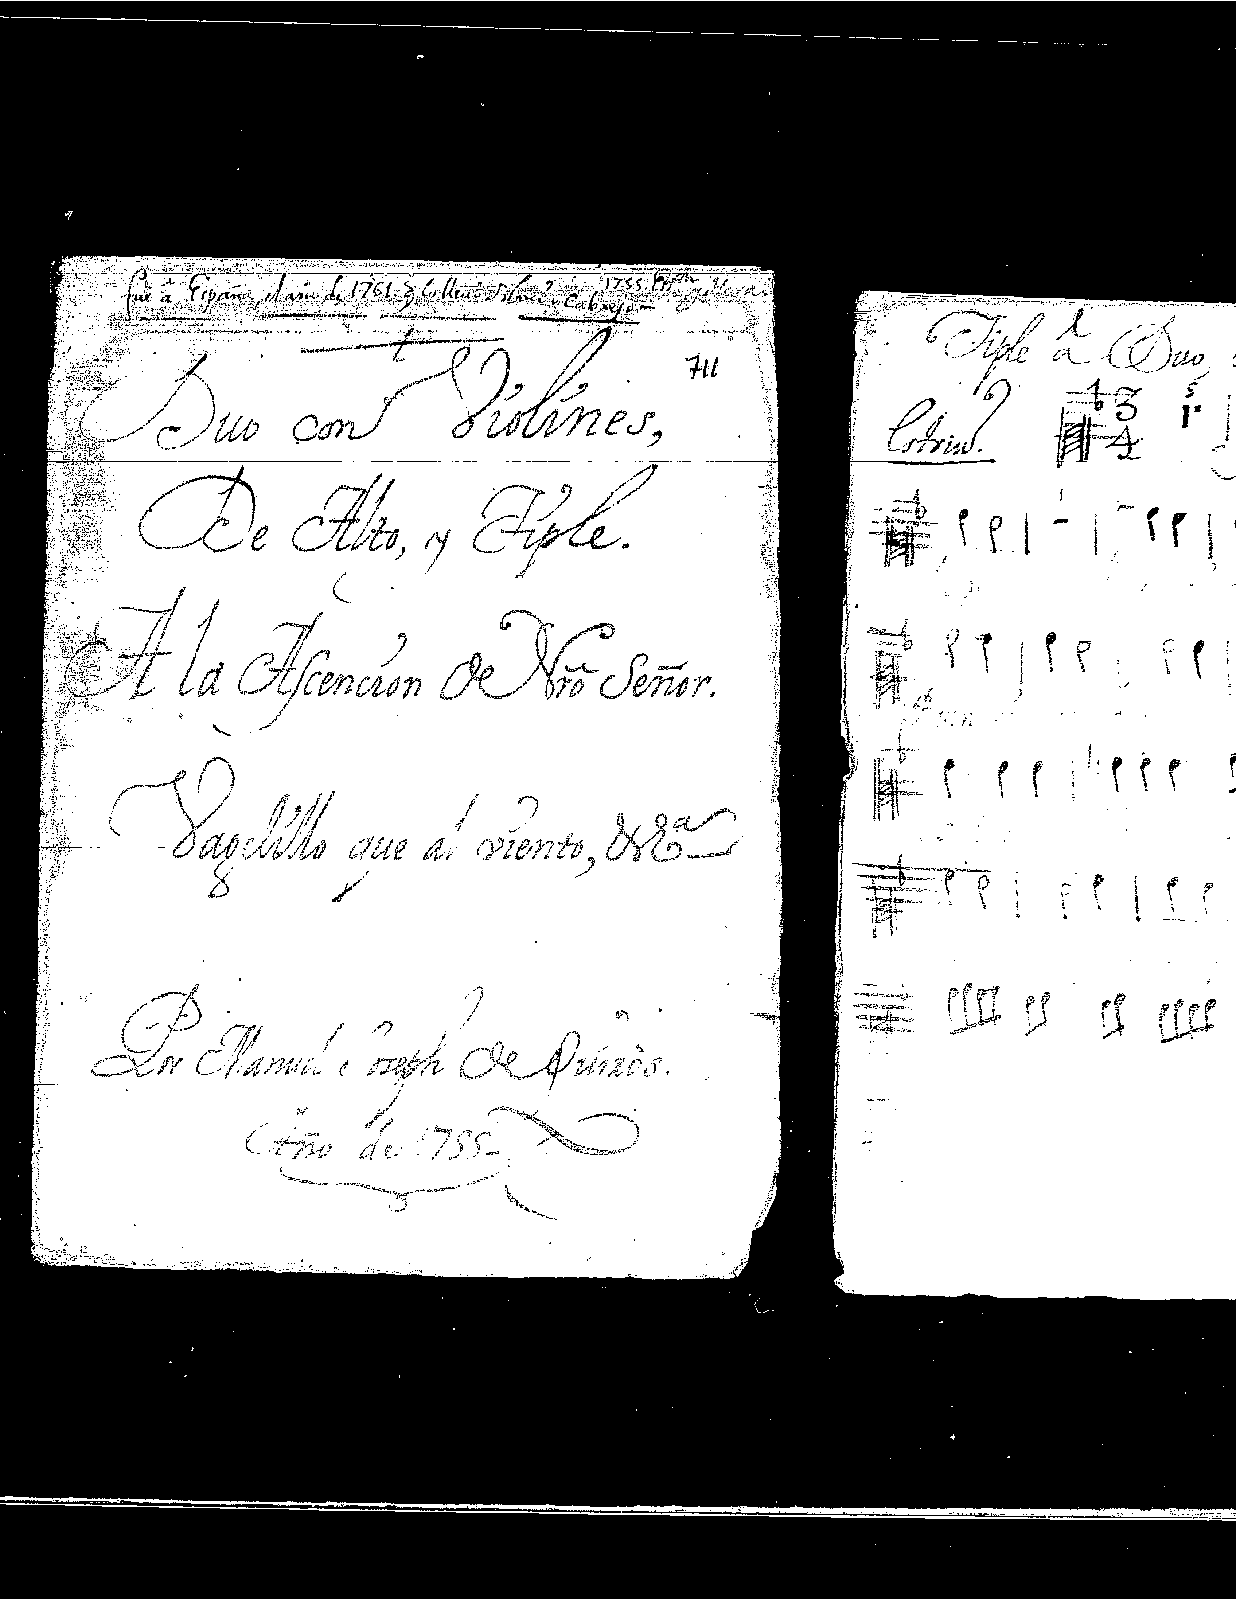 fue â España el año de 1761 y
1755
711
Duo con Violines,
De Alto, y Tiple.
A la Ascencion de Nrõ Señor.
Vagelillo que al viento, &ª
Por Manuel Joseph de Quiròs.
Año de 1755
Tiple â Duo,
3
4